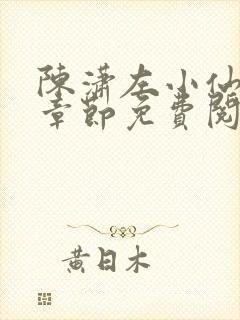 陳瀟左小仙
章節免費閱
黃日木